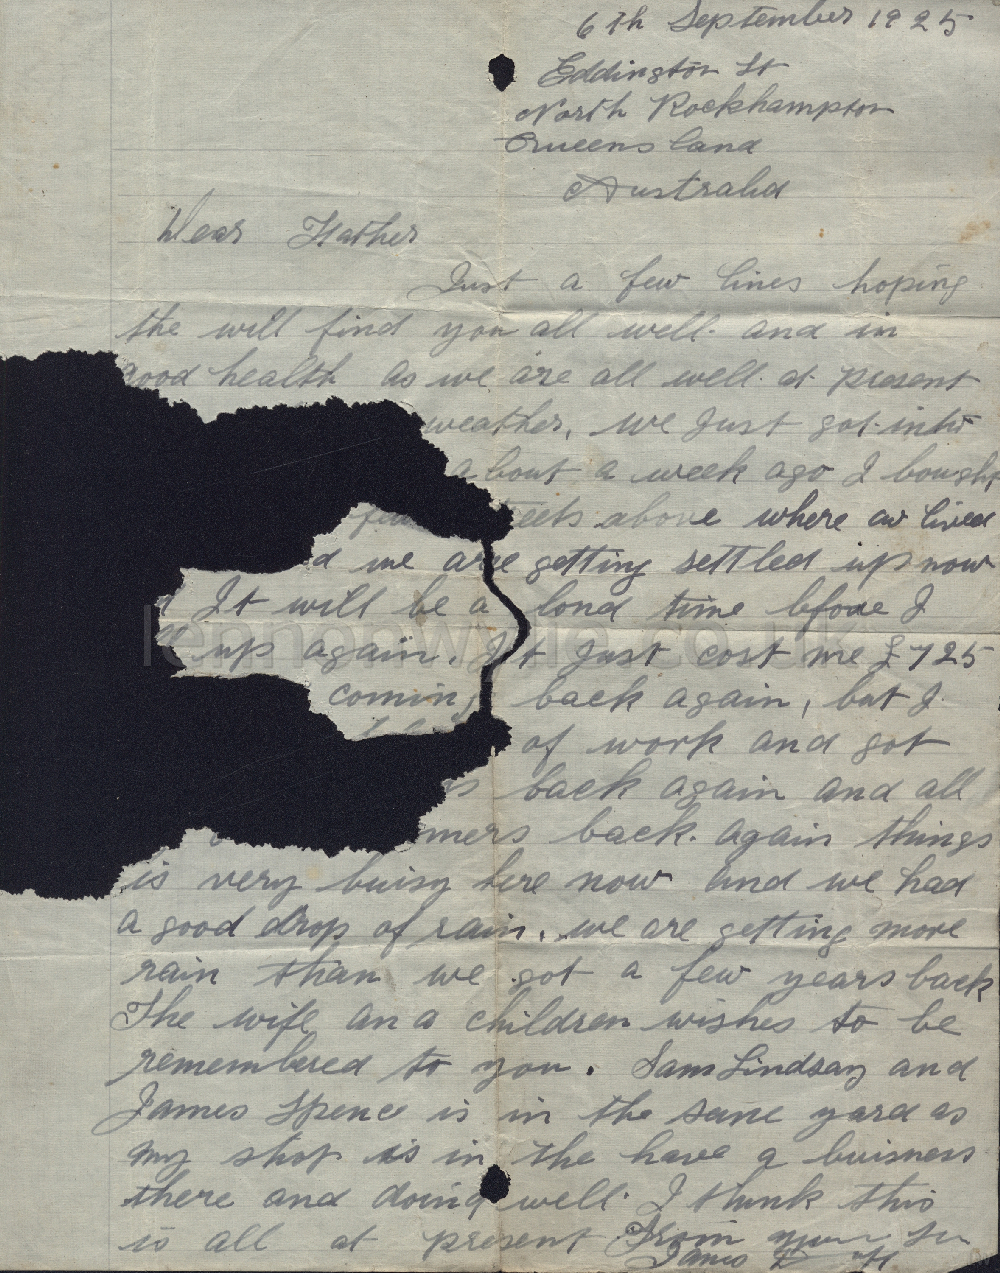 6th September 1925
Eddington St
North Rockhampton
Queensland
Australia
Dear Father
Just a few lines hoping
the will find you all well. and in
good health as we are all well. at present
weather, we Just got into
about a week ago I bought
few above where we lived
we are getting settled up now
It will be a lond time before I
up again. It Just cost me £725
coming back again, but I
of work and got
back again and all
back. again things
is very buisy here now and we had
a good drop of rain. we are getting more
rain than we got a few years back
The wife and children wishes to be
remembered to you. Sam Lindsay and
James Spence is in the same yard as
my shop is in the have a buisness
there and doing well. I think this
is all at present From your Son
James
lennonwylie.co.uk